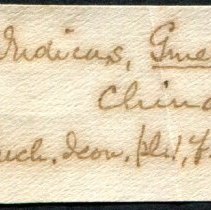 Indicus, Gme
China
uch. Icon. pl. 1, f.